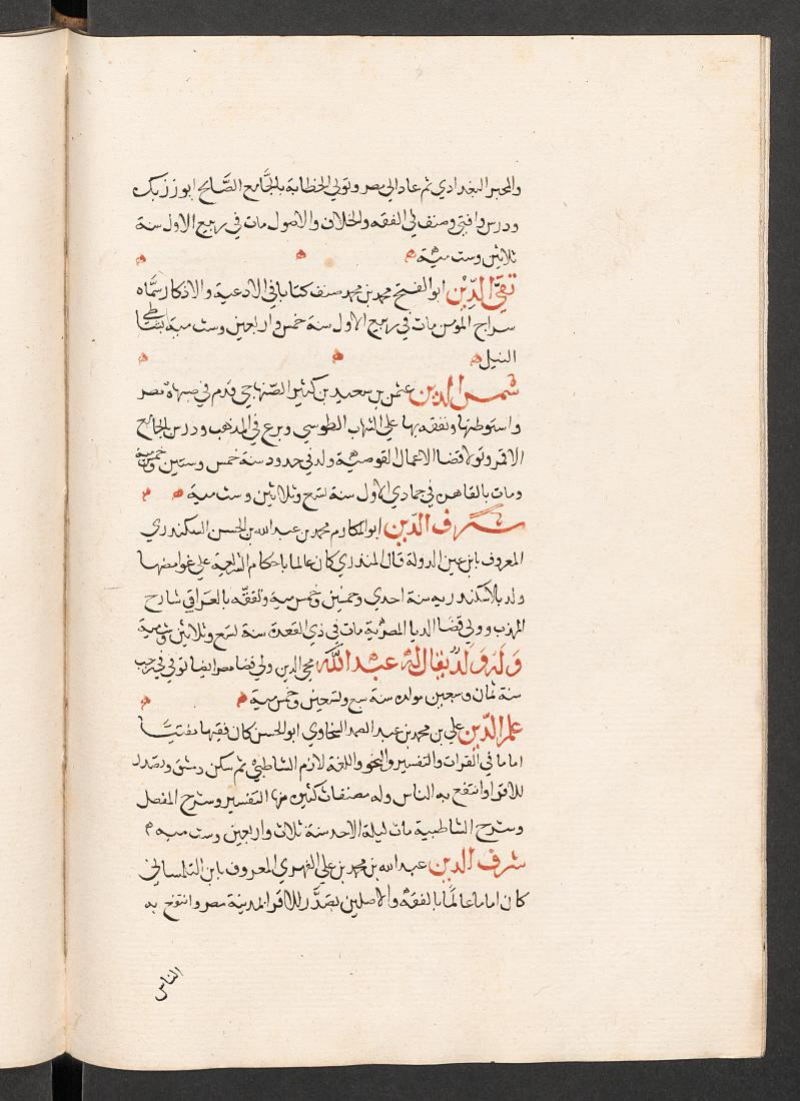 والمجير البغدادي ثم عاد الي مصر وتولي الخطابة بالجَّامع الصَّالح ابو رزبك
ودرس وافتي وصنف في الفقه والخلاف والاصول مات في ربيع الاول سنة
ثلاثين وست ميّة
تقيّ الدِّين ابو الفتح محمد بن محمد صنف كتابا في الادعية والاذكار سمَّاه
سراج المومن مات في ربيع الاول سنة خمس واربعين وست مية بشاطي
النيل
شمس الدين عثمن بن سعيد بن كثير الصّنهاجي قدم في صباه مصر
واستوطنها وتفقه بها علي الشهاب الطوسي وبرع في المذهب ودرس بالجامع
الاقمر وتولا قضا الاعمال القوصيّة ولد في حدود سنة خمس وستين وخمس مية
ومات بالقاهرة في جمادي الاول سنة تسع وثلاثين وست مية
شرف الدّين ابو المكارم محمد بن عبد الله بن الحسن السكندري
المعروف بابن عين الدولة قال المنذري كان عالما باحكام الشرعية علي غوامضها
ولد بالاسكندرية سنة احدي وخمسين وخمس مية وتفقّه بالعراقي شارح
المهذب وولي قضا الديا المصريّة مات في ذي القعدة سنة تسع وثلاثين وست مية
وَلَهُ وَلَدٌ يقال لهُ عبْد اللَّه محي الدين ولي قضا مصر ايضا توفي في رجب
سنة ثمان وسبعين مولده سنة سبع وتسعين وخمس مية
علم الدّين علي بن محمد بن عبد الصمد السخاوي ابو الحسن كان فقيها مفتيًّا
اماما في القرات والتفسير والنحو واللغة لازم الشاطبيّ ثم سكن دمشق وتصدر
للاقرا وانتفع به الناس وله مصنفات كثيرة منها التفسير وشرح المفصل
وشرح الشاطبية مات ليلة الاحد سنة ثلاث واربعين وست مية
شرف الدين عبد الله بن محمد بن علي الفهري المعروف بابن التلمساني
كان اماما عالمًا بالفقه والاصلين تصدَّر للاقرا بمدينة مصر وانتفع به
الناس